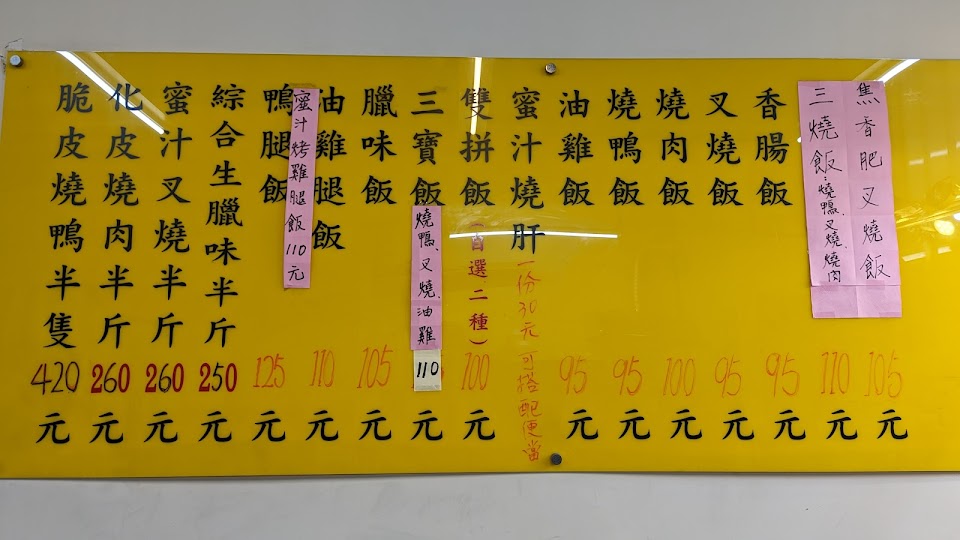 焦香肥叉燒飯 105元
三燒飯 燒鴨、叉燒、燒肉 110元
香腸飯 95元
叉燒飯 95元
燒肉飯 100元
燒鴨飯 95元
油雞飯 95元
蜜汁燒肝 一份30元可搭配便當
雙拼飯(自選二種) 100元
三寶飯 燒鴨、叉燒、油雞 110元
臘味飯 105元
油雞腿飯 110元
蜜汁烤雞腿飯110元
鴨腿飯 125元
綜合生臘味半斤 250元
蜜汁叉燒半斤 260元
化皮燒肉半斤 260元
脆皮燒鴨半隻 420元